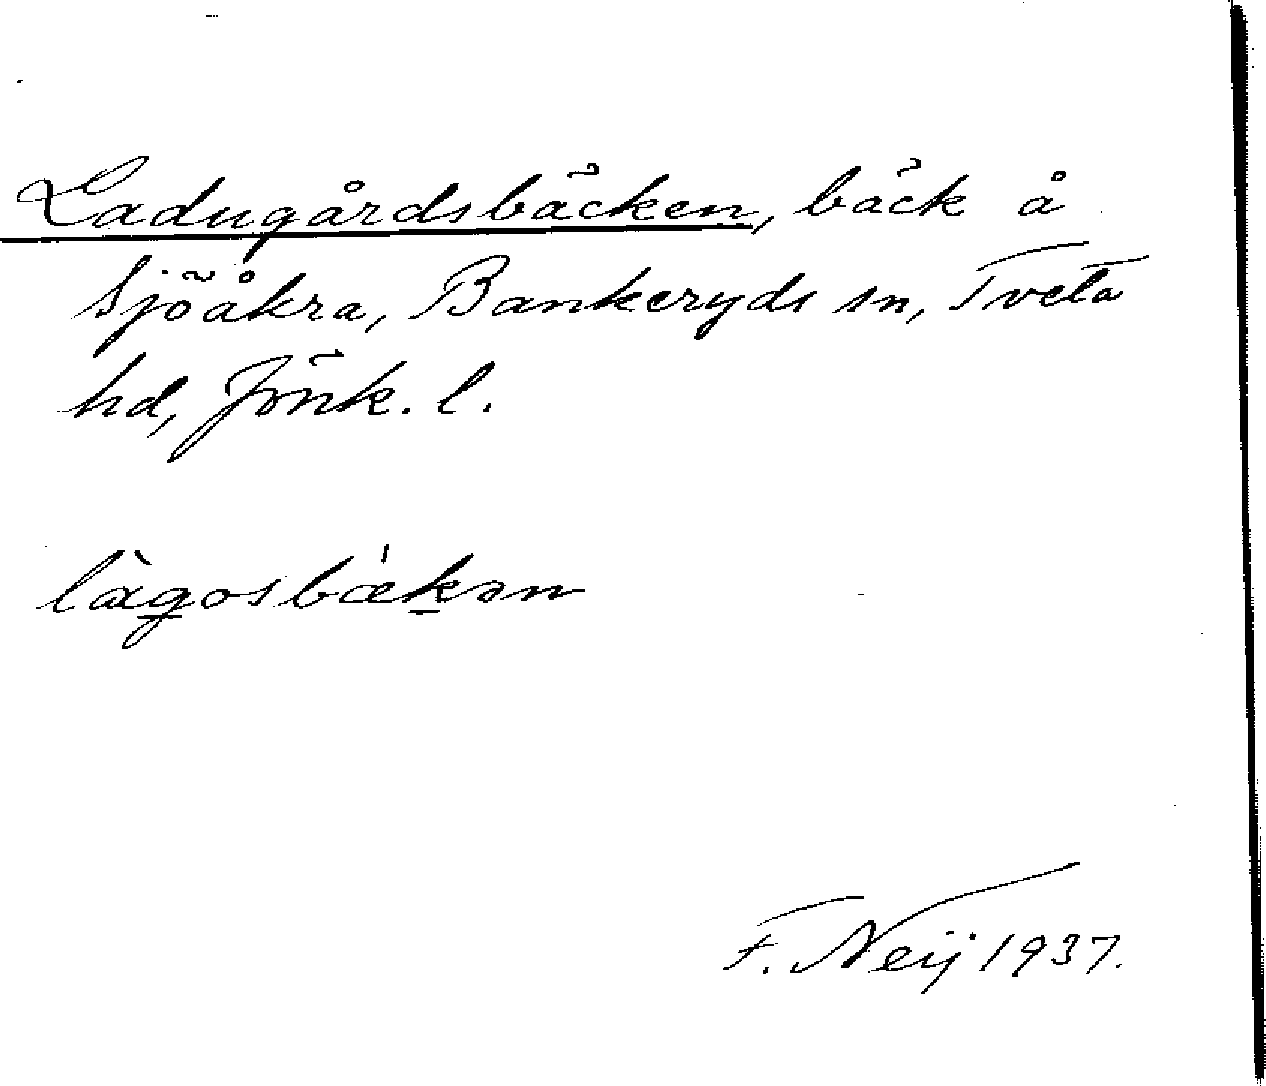 Ladugårdsbäcken, bäck å
Sjöåkra, Bankeryds sn, Tveta
hd, Jönk. l.
làgosbækən
F. Neij 1937.